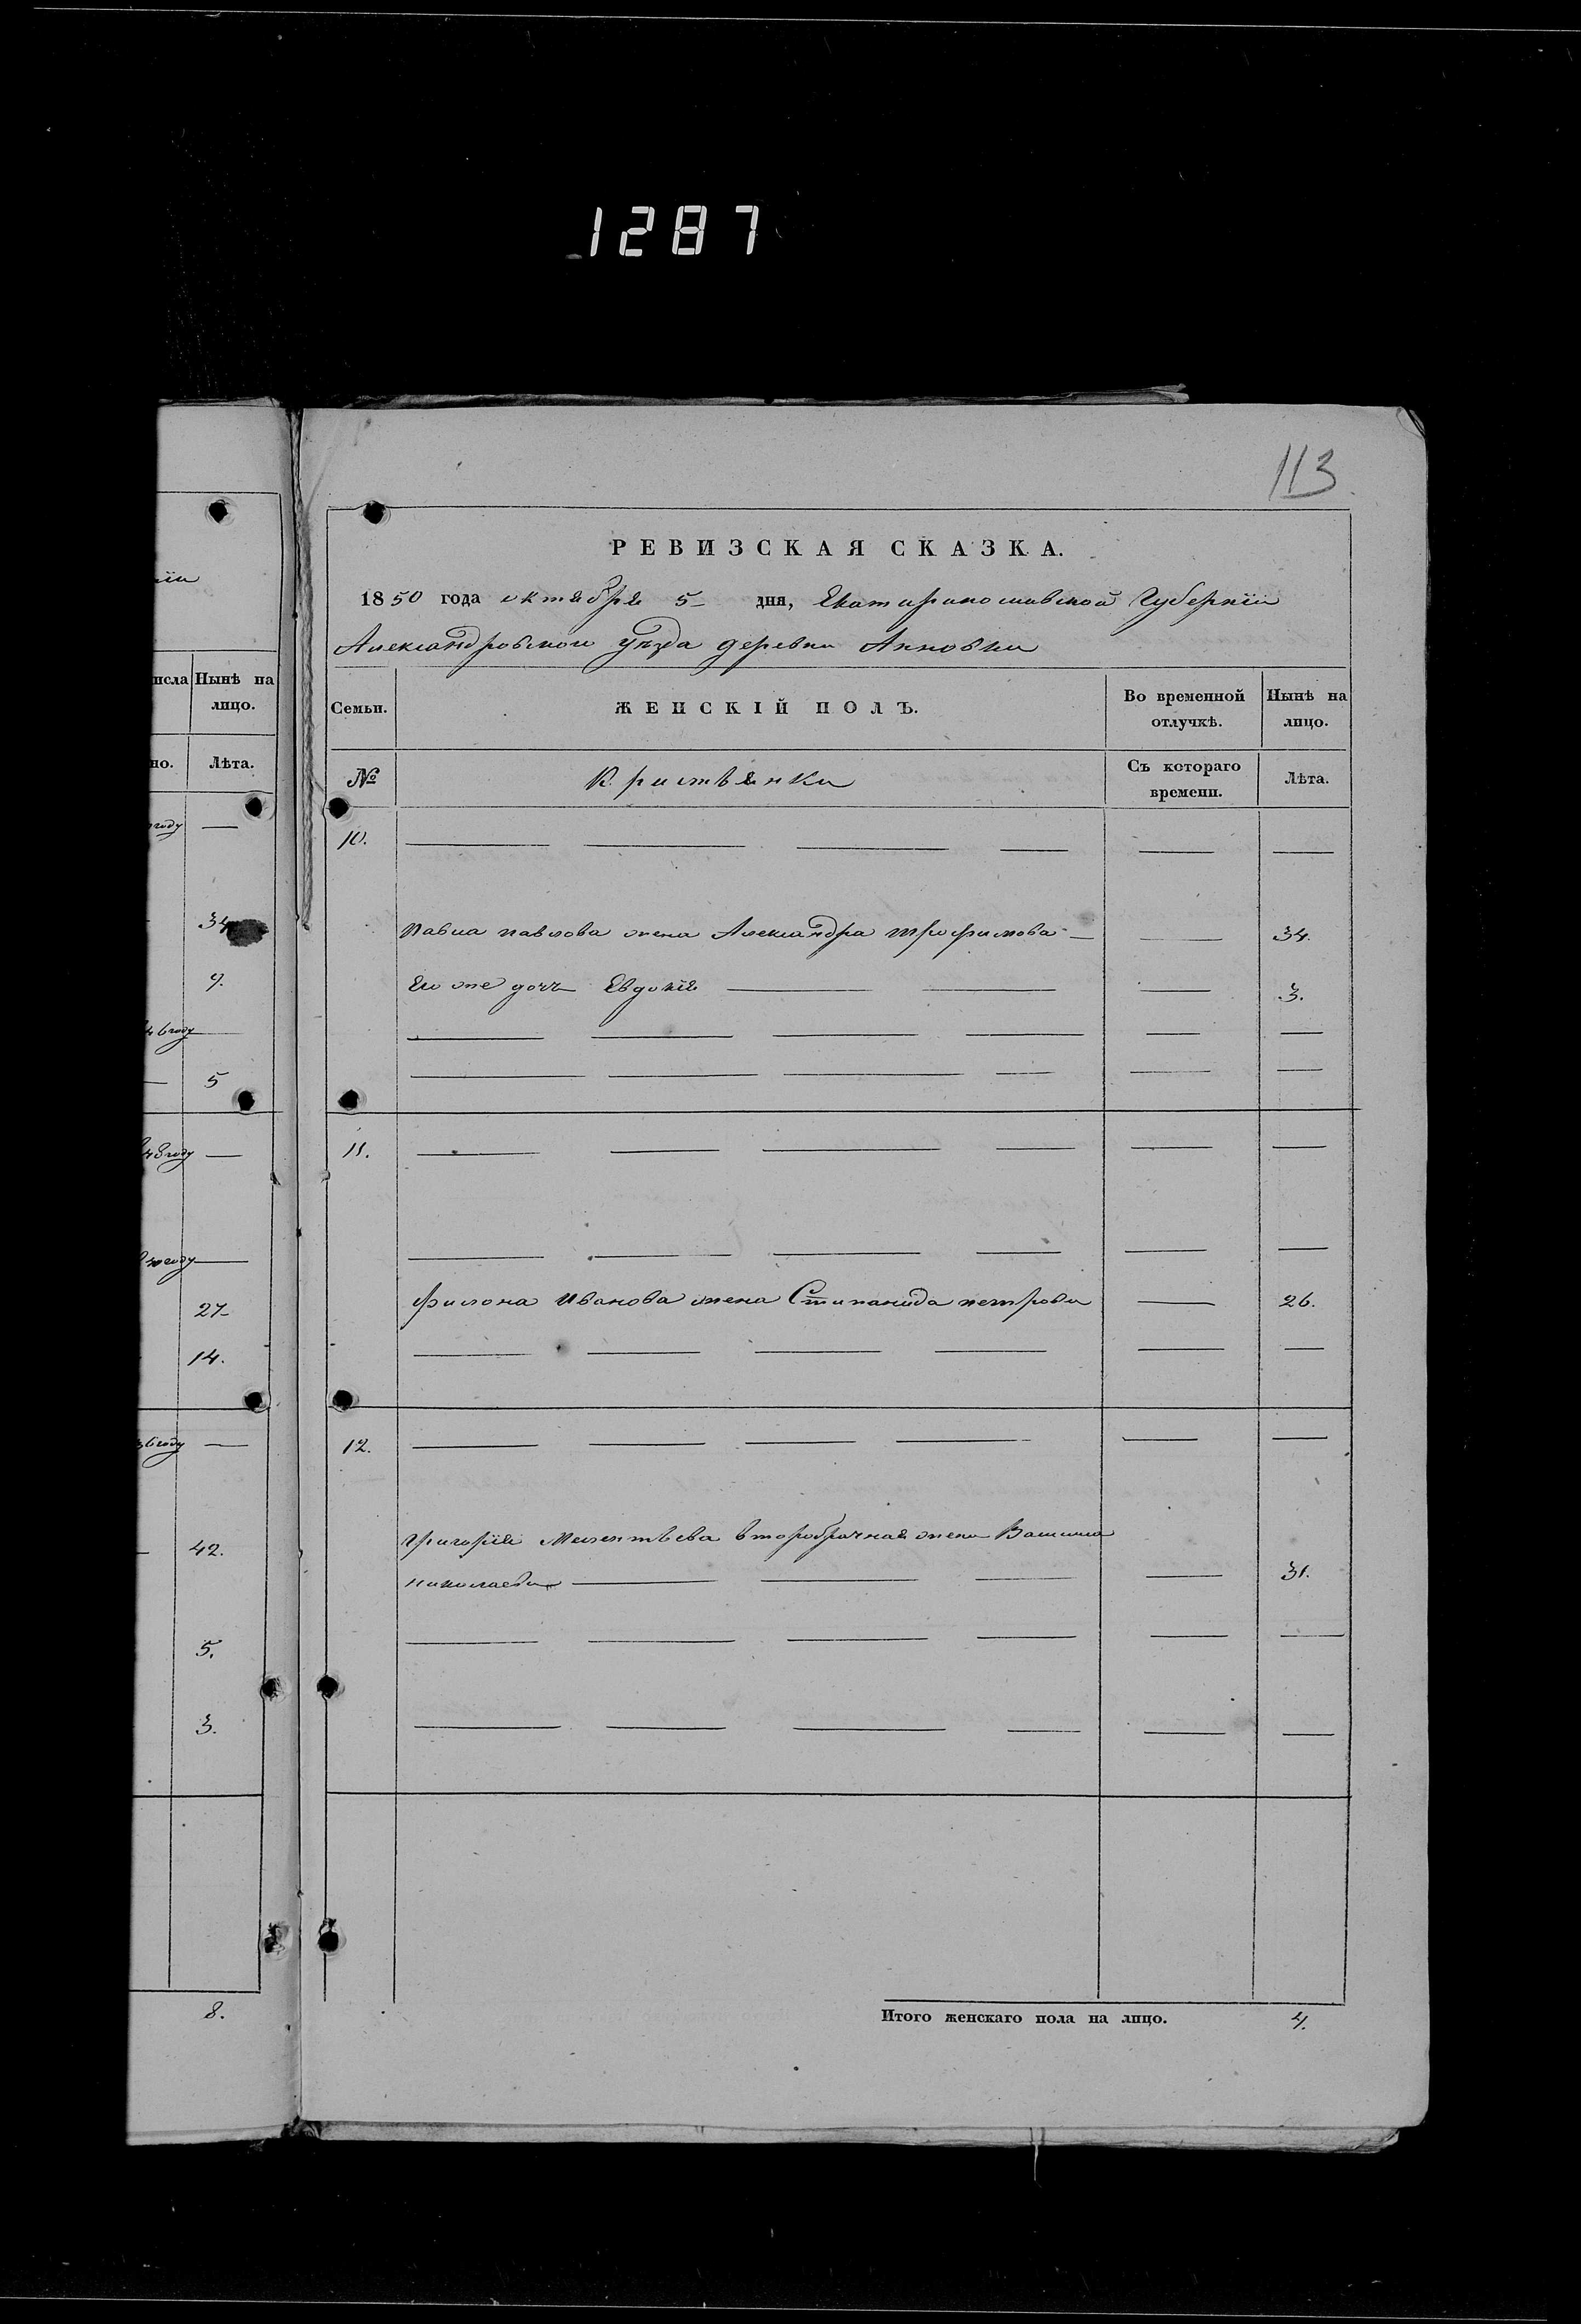 1287
113
РЕВИЗСКАЯ СКАЗКА.
1850 года октября 5 дня, Екатиринославской Губернїи
Александровского уѣзда деревни Анновки
Семьи. ЖЕНСКІЙ ПОЛЪ. Во временной отлучкѣ. Нынѣ на лицо.
№ Кристьянки Съ котораго времени. Лѣта.
10. — — — — — —
Павла павлова жена Александра трофимова — — 34.
Его же дочь Евдокія — — — 3.
— — — — — —
— — — — — —
11. — — — — — —
— — — — — —
филона Иванова жена Стипанида петрова — 26.
— — — — — —
12. — — — — — —
григорія Мелентьева второбрачная жена
николаева — — — — 31.
— — — — — —
— — — — — —
Итого женскаго пола на лицо. 4.
нїи
исла Нынѣ на лицо.
но. Лѣта.
году —
34
9.
46 году —
5
48 году —
году —
27
14.
36 году —
42.
5.
3.
8.